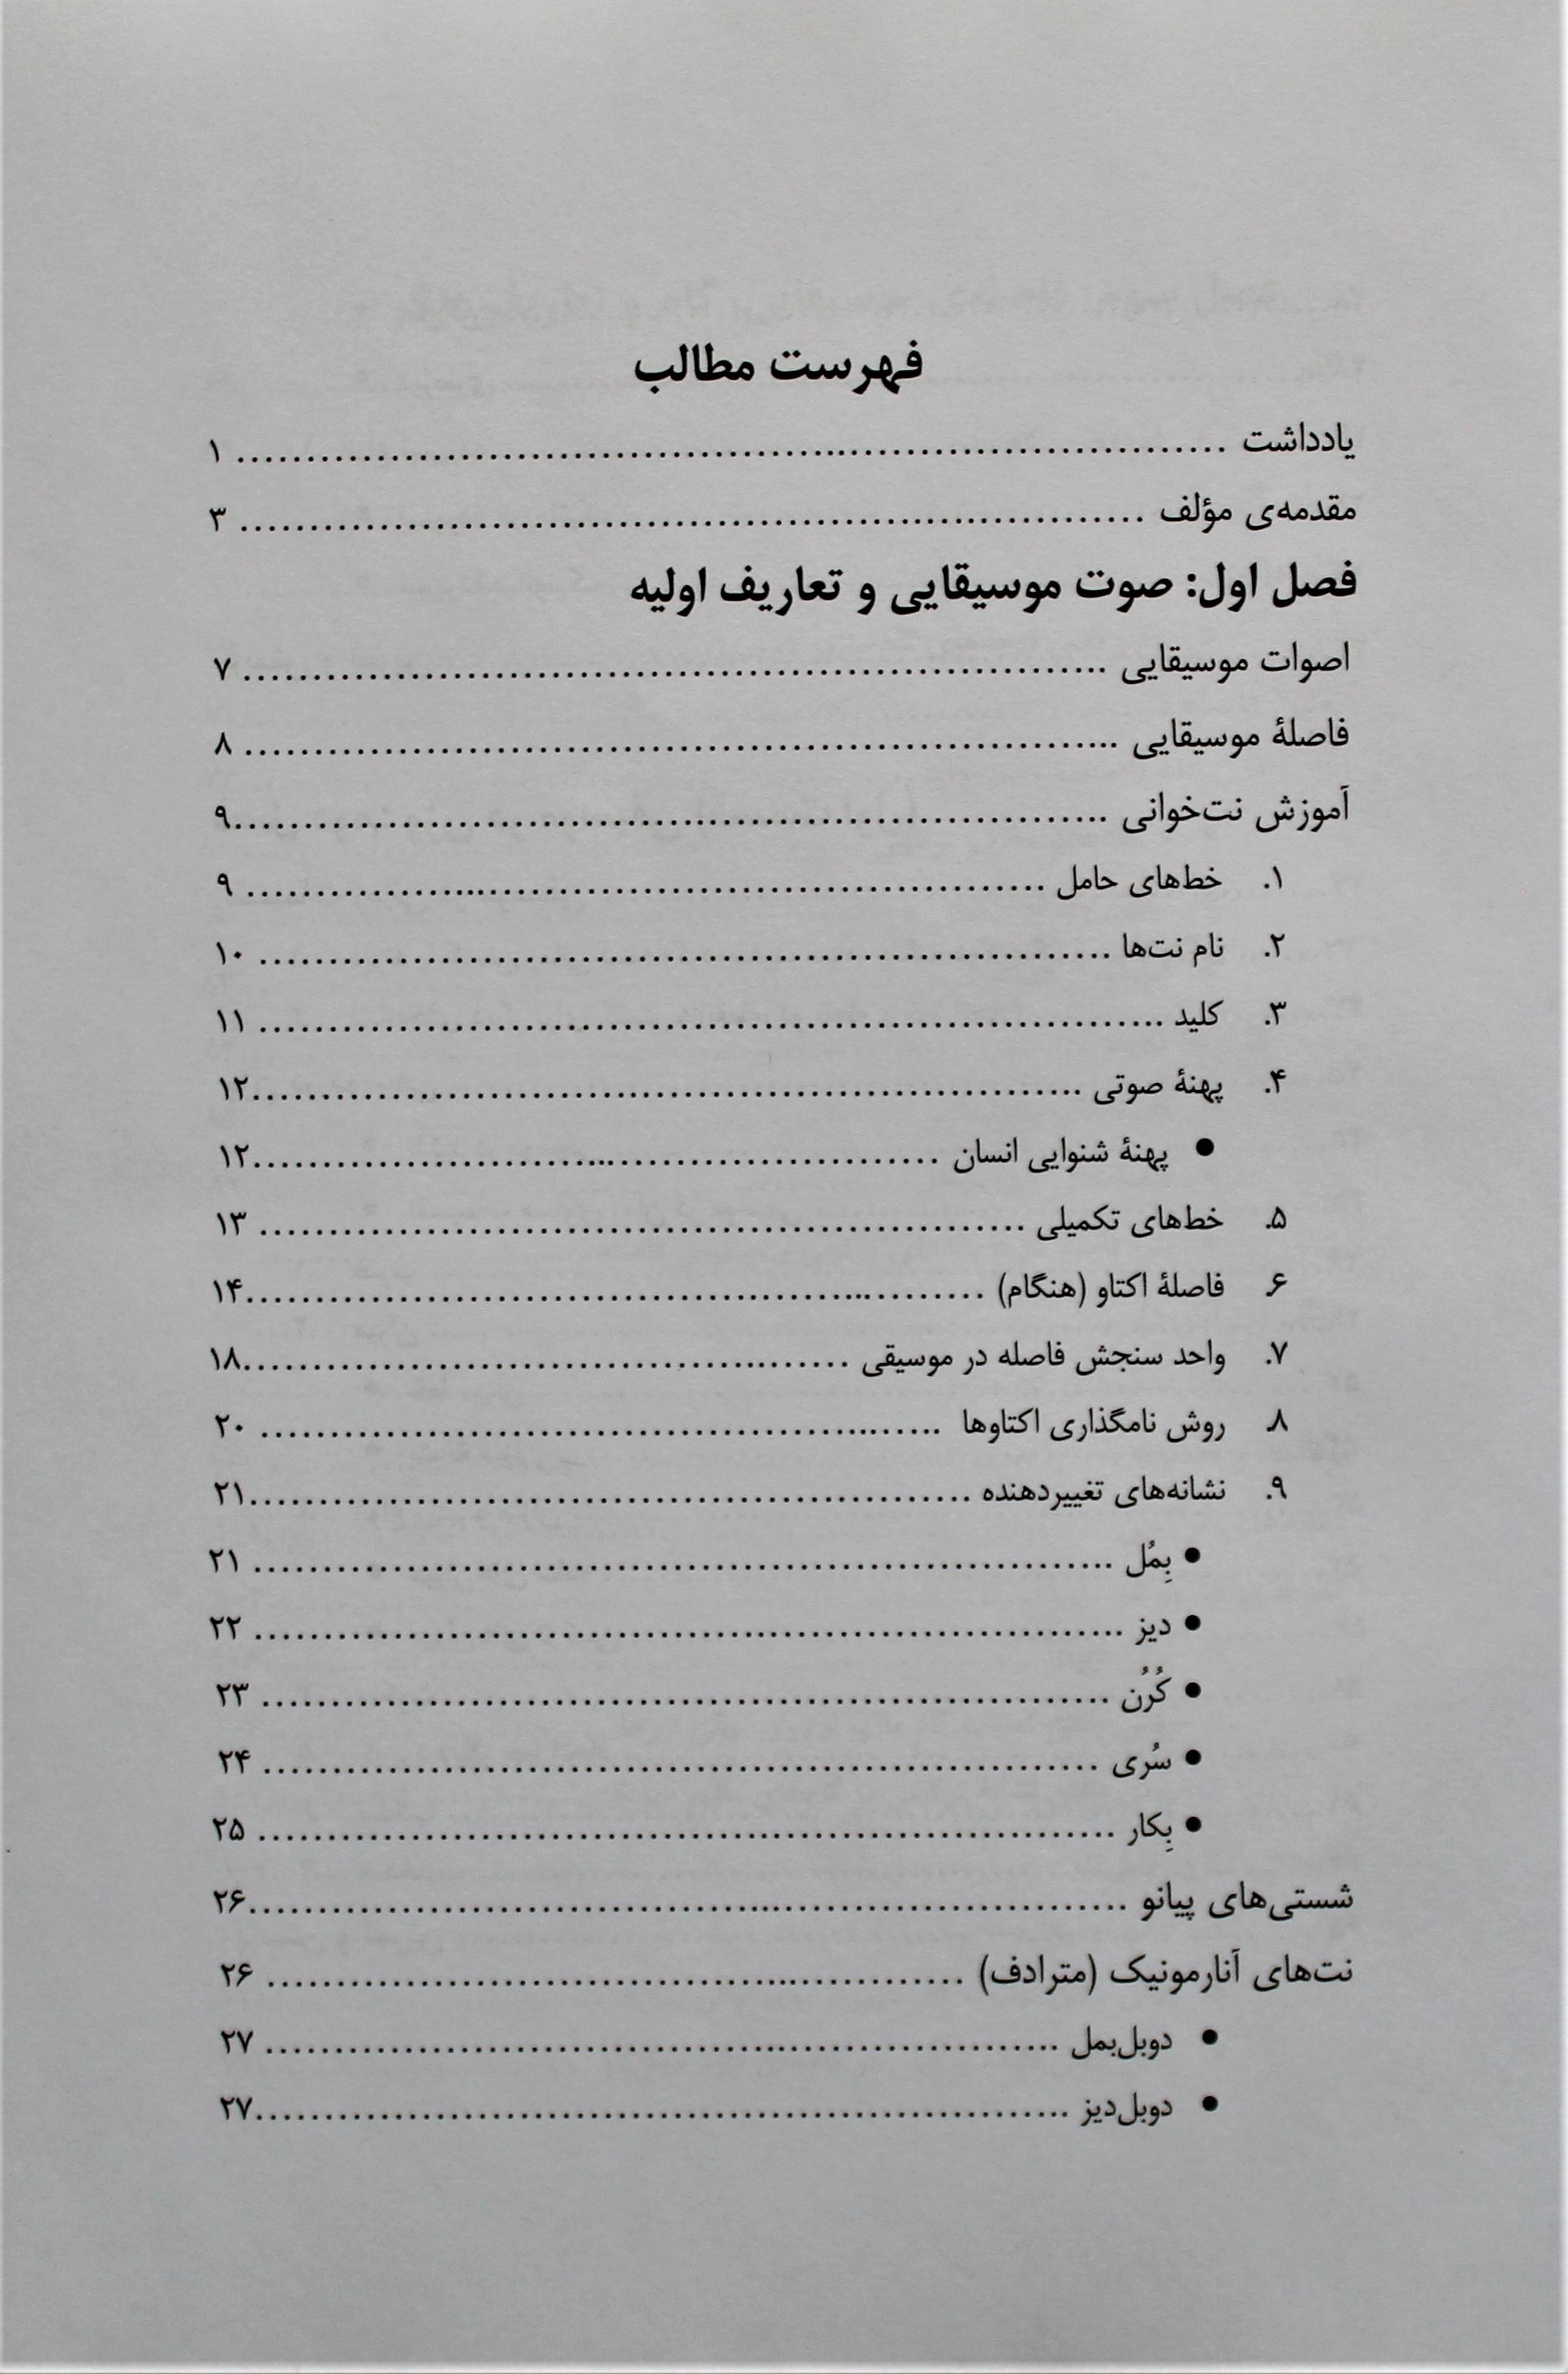 فهرست مطالب
یادداشت ........................................ ۱
مقدمه‌ی مؤلف ........................................ ۳
فصل اول: صوت موسیقایی و تعاریف اولیه
اصوات موسیقایی ........................................ ۷
فاصلهٔ موسیقایی ........................................ ۸
آموزش نت‌خوانی ........................................ ۹
۱. خط‌های حامل ........................................ ۹
۲. نام نت‌ها ........................................ ۱۰
۳. کلید ........................................ ۱۱
۴. پهنهٔ صوتی ........................................ ۱۲
● پهنهٔ شنوایی انسان ........................................ ۱۲
۵. خط‌های تکمیلی ........................................ ۱۳
۶. فاصلهٔ اکتاو (هنگام) ........................................ ۱۴
۷. واحد سنجش فاصله در موسیقی ........................................ ۱۸
۸. روش نامگذاری اکتاوها ........................................ ۲۰
۹. نشانه‌های تغییردهنده ........................................ ۲۱
● بِمُل ........................................ ۲۱
● دیز ........................................ ۲۲
● کُرُن ........................................ ۲۳
● سُری ........................................ ۲۴
● بِکار ........................................ ۲۵
شستی‌های پیانو ........................................ ۲۶
نت‌های آنارمونیک (مترادف) ........................................ ۲۶
● دوبل‌بمل ........................................ ۲۷
● دوبل‌دیز ........................................ ۲۷